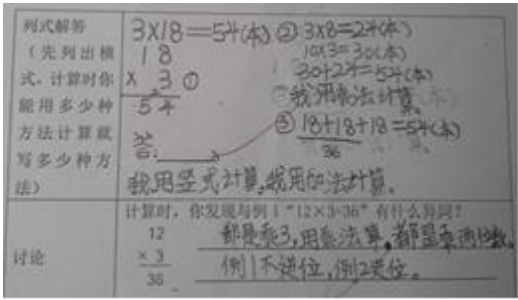 列式解答
(先列出横
式，计算时你
能用多少种
方法计算就
写多少种方
法)
3×18=54(本)
18
× 3 ①
54
答:
② 3×8=24(本)
10×3=30(本)
30+24=54(本)
我用乘法计算。
③ 18+18+18=54(本)
36
我用竖式计算,我用加法计算。
讨论
计算时，你发现与例1“12×3=36”有什么异同？
12
× 3
36
都是乘3,用乘法算,都是乘两位数。
例1不进位,例2进位。